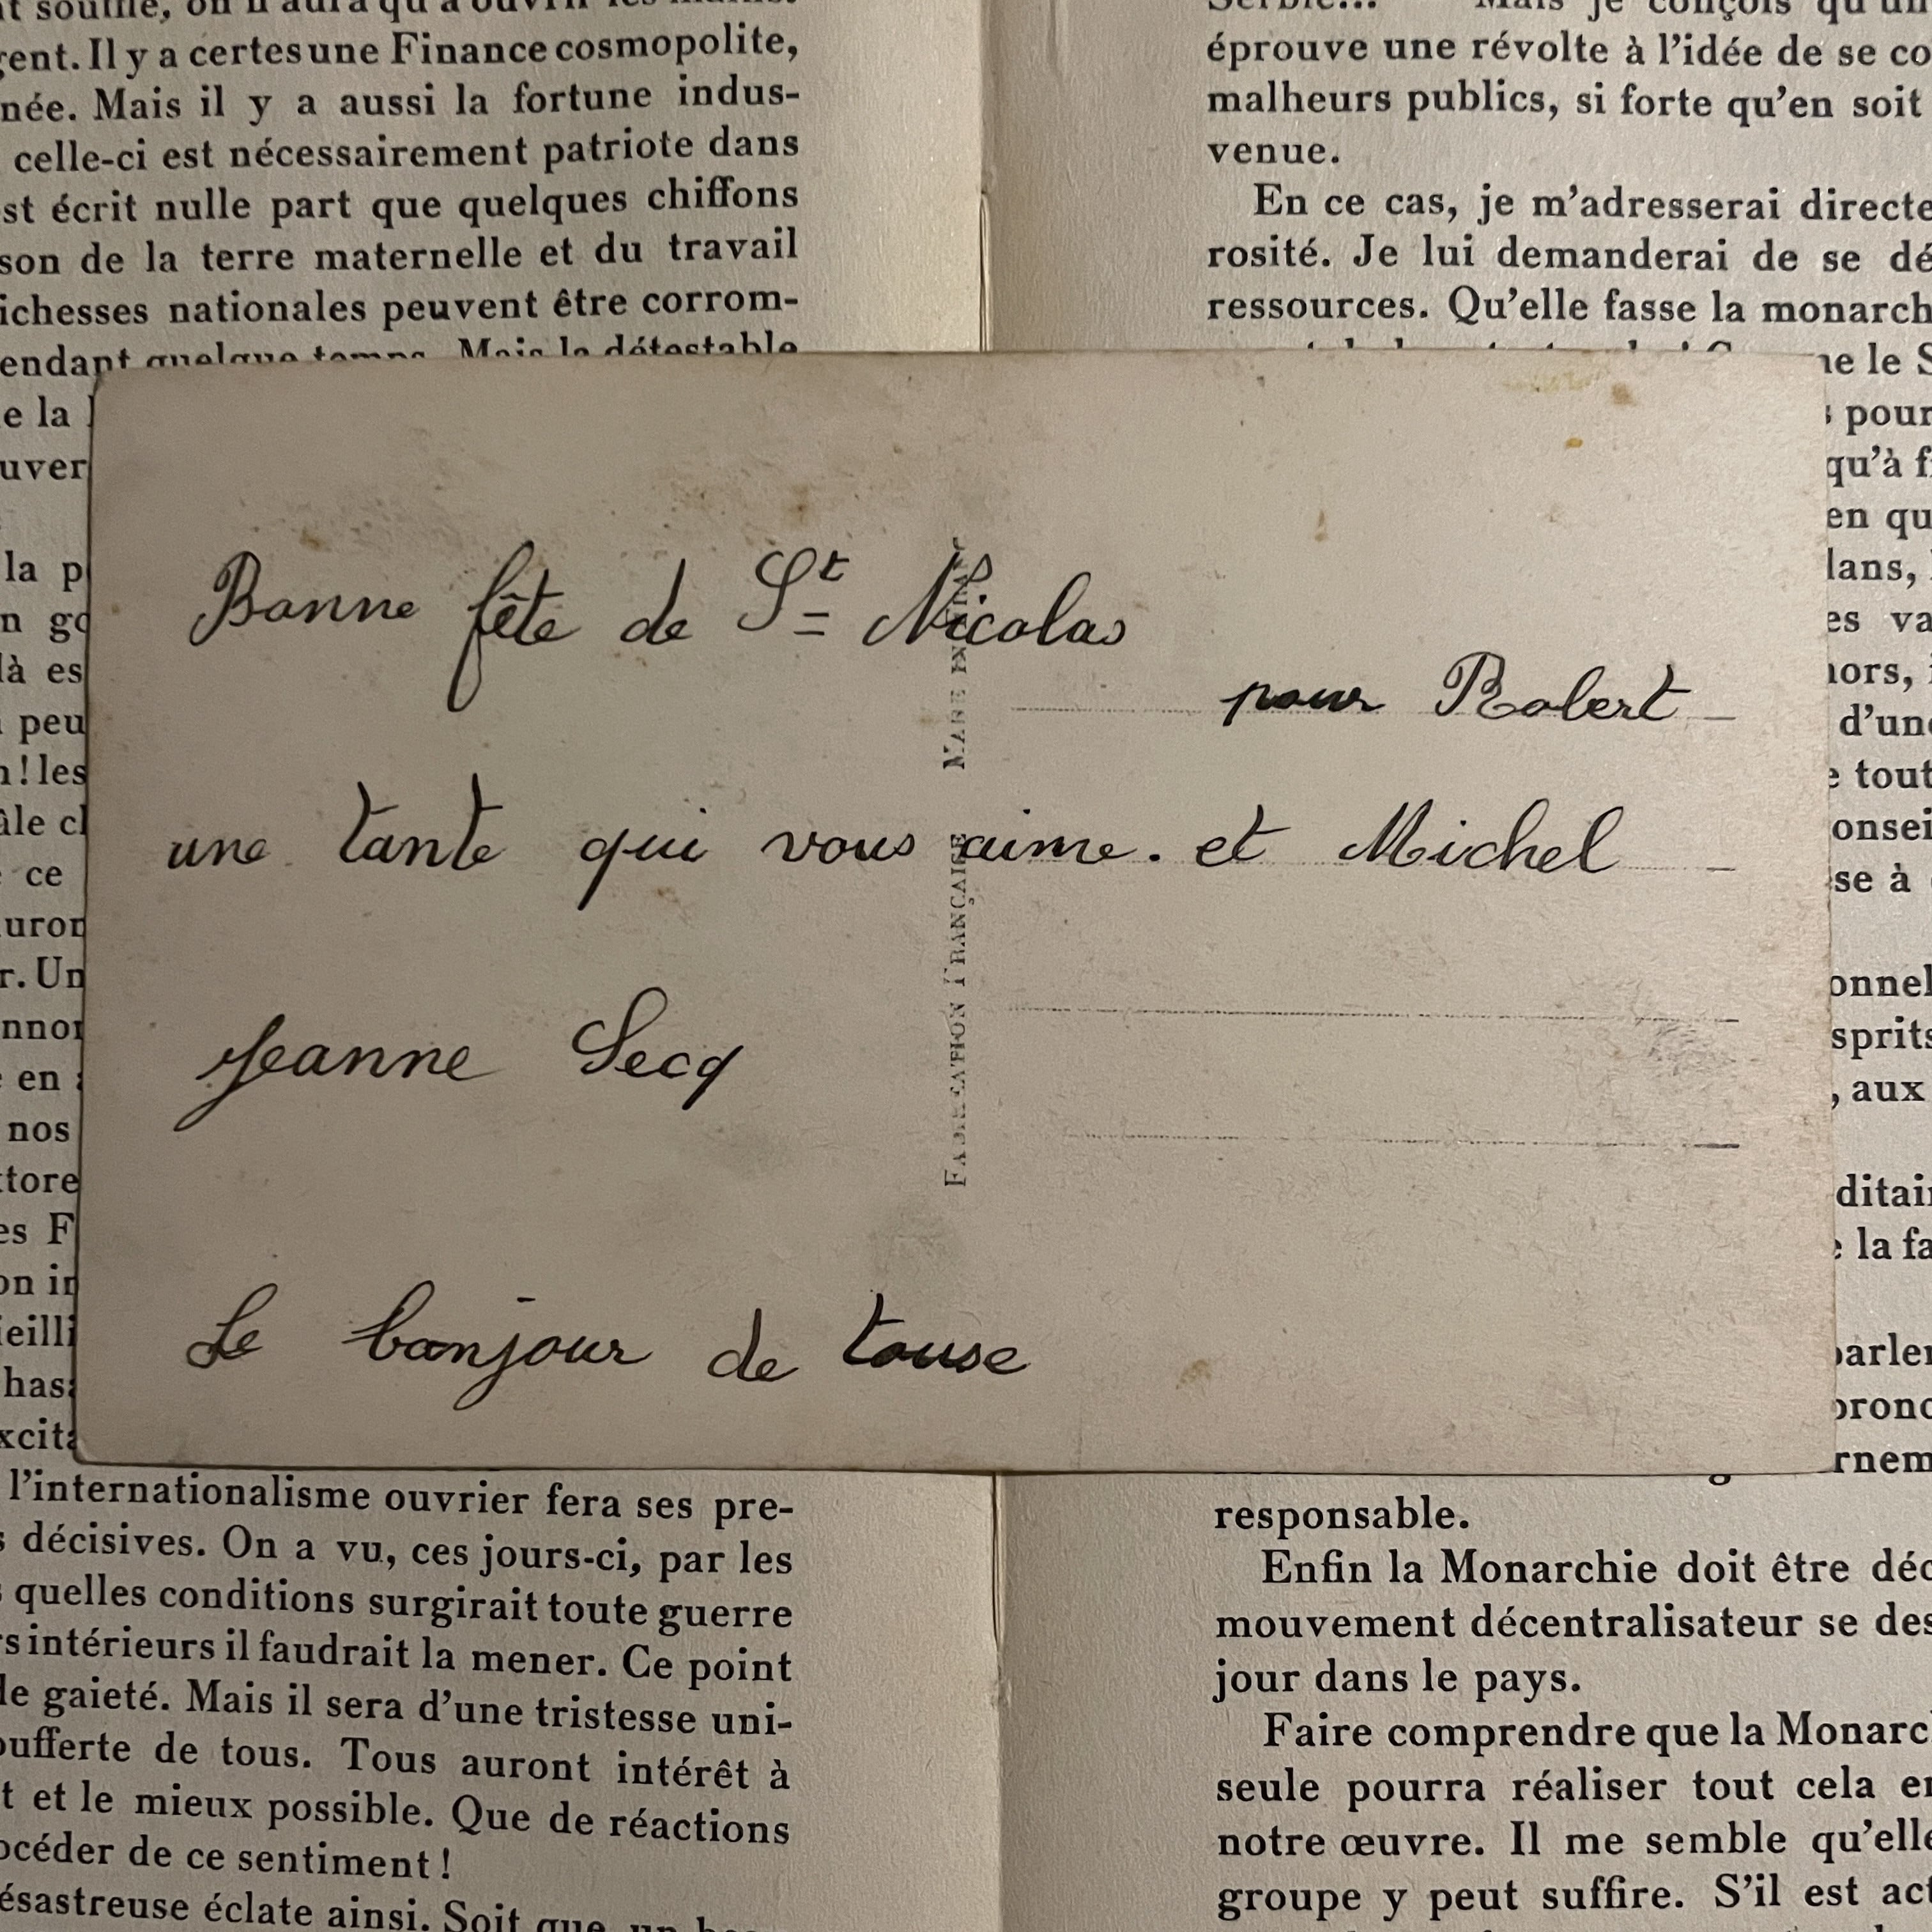 nt souffle, on n'aura qu'à ouvrir les mains.
gent. Il y a certes une Finance cosmopolite,
née. Mais il y a aussi la fortune indus-
celle-ci est nécessairement patriote dans
st écrit nulle part que quelques chiffons
son de la terre maternelle et du travail
ichesses nationales peuvent être corrom-
endant quelque temps. Mais la détestable
e la
uver
la p
n go
là es
peu
n ! les
âle cl
ce
auron
r. Un
nnor
en
nos
ctore
es F
on in
ieilli
has
xcita
l'internationalisme ouvrier fera ses pre-
s décisives. On a vu, ces jours-ci, par les
s quelles conditions surgirait toute guerre
rs intérieurs il faudrait la mener. Ce point
de gaieté. Mais il sera d'une tristesse uni-
oufferte de tous. Tous auront intérêt à
t et le mieux possible. Que de réactions
océder de ce sentiment !
ésastreuse éclate ainsi. Soit que un
Bonne fête de St Nicolas
pour Robert
une tante qui vous aime. et Michel
Jeanne Secq
Le bonjour de touse
FABRICATION FRANÇAISE MADE IN FRANCE
Serbie... Mais je conçois qu'un
éprouve une révolte à l'idée de se co
malheurs publics, si forte qu'en soit
venue.
En ce cas, je m'adresserai directe
rosité. Je lui demanderai de se dé
ressources. Qu'elle fasse la monarch
ne le S
pour
qu'à f
en qu
lans,
es va
hors,
d'une
e tout
onsei
se à
onnel
sprits
, aux
ditair
e la fa
parler
pronc
rnem
responsable.
Enfin la Monarchie doit être déc
mouvement décentralisateur se des
jour dans le pays.
Faire comprendre que la Monarc
seule pourra réaliser tout cela en
notre œuvre. Il me semble qu'elle
groupe y peut suffire. S'il est act